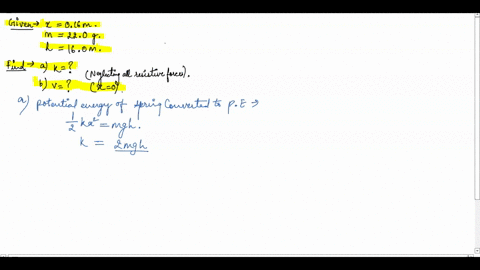 Given → x = 0.16 m.
m = 22.0 g.
h = 16.0 m.
Find → a) k = ? (Neglecting all resistive forces).
b) v = ? (x = 0)
a) potential energy of spring converted to P.E ⇒
1/2 kx² = mgh.
k = 2mgh